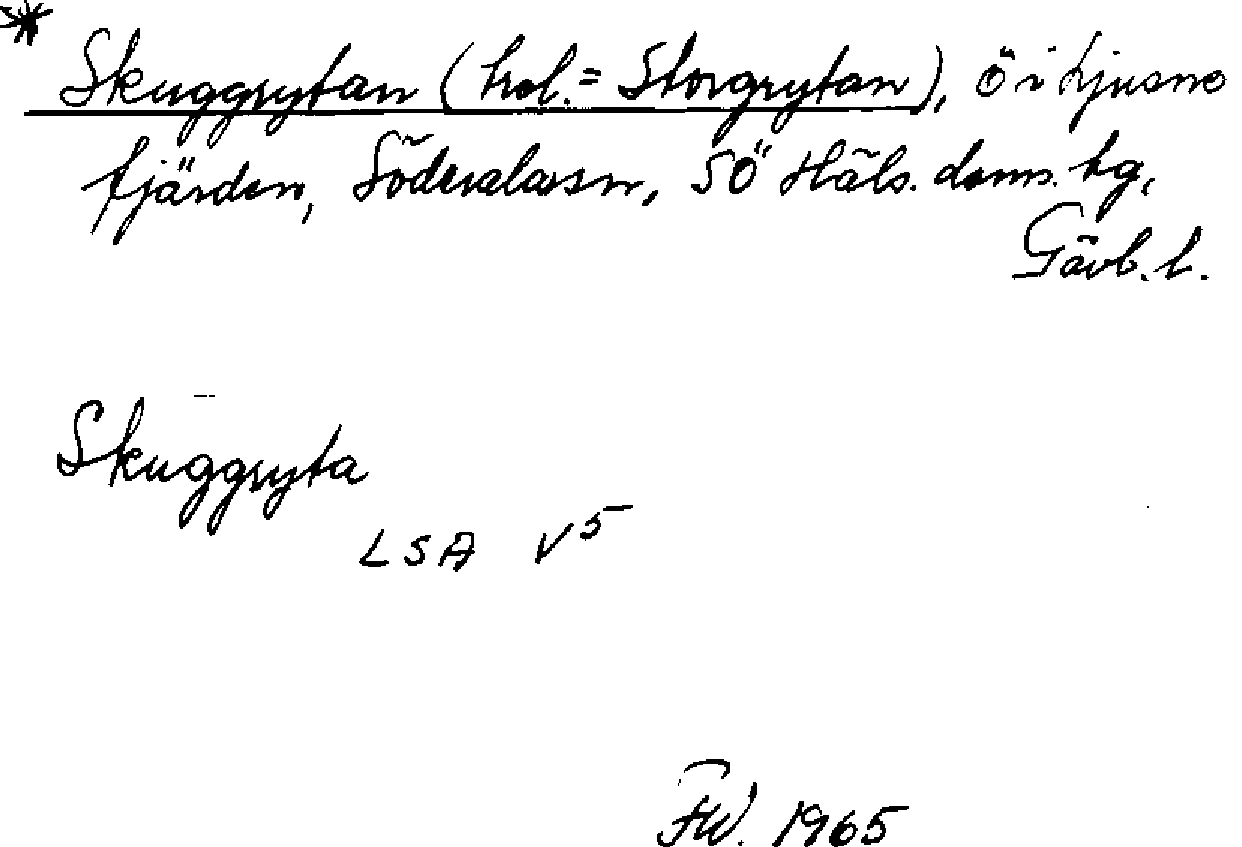 * Skuggrytan (trol. = Storgrytan), ö i Ljusne
fjärden, Söderala sn, SÖ Häls. doms. tg,
Gävl. l.
Skuggryta
LSA V5
FW. 1965